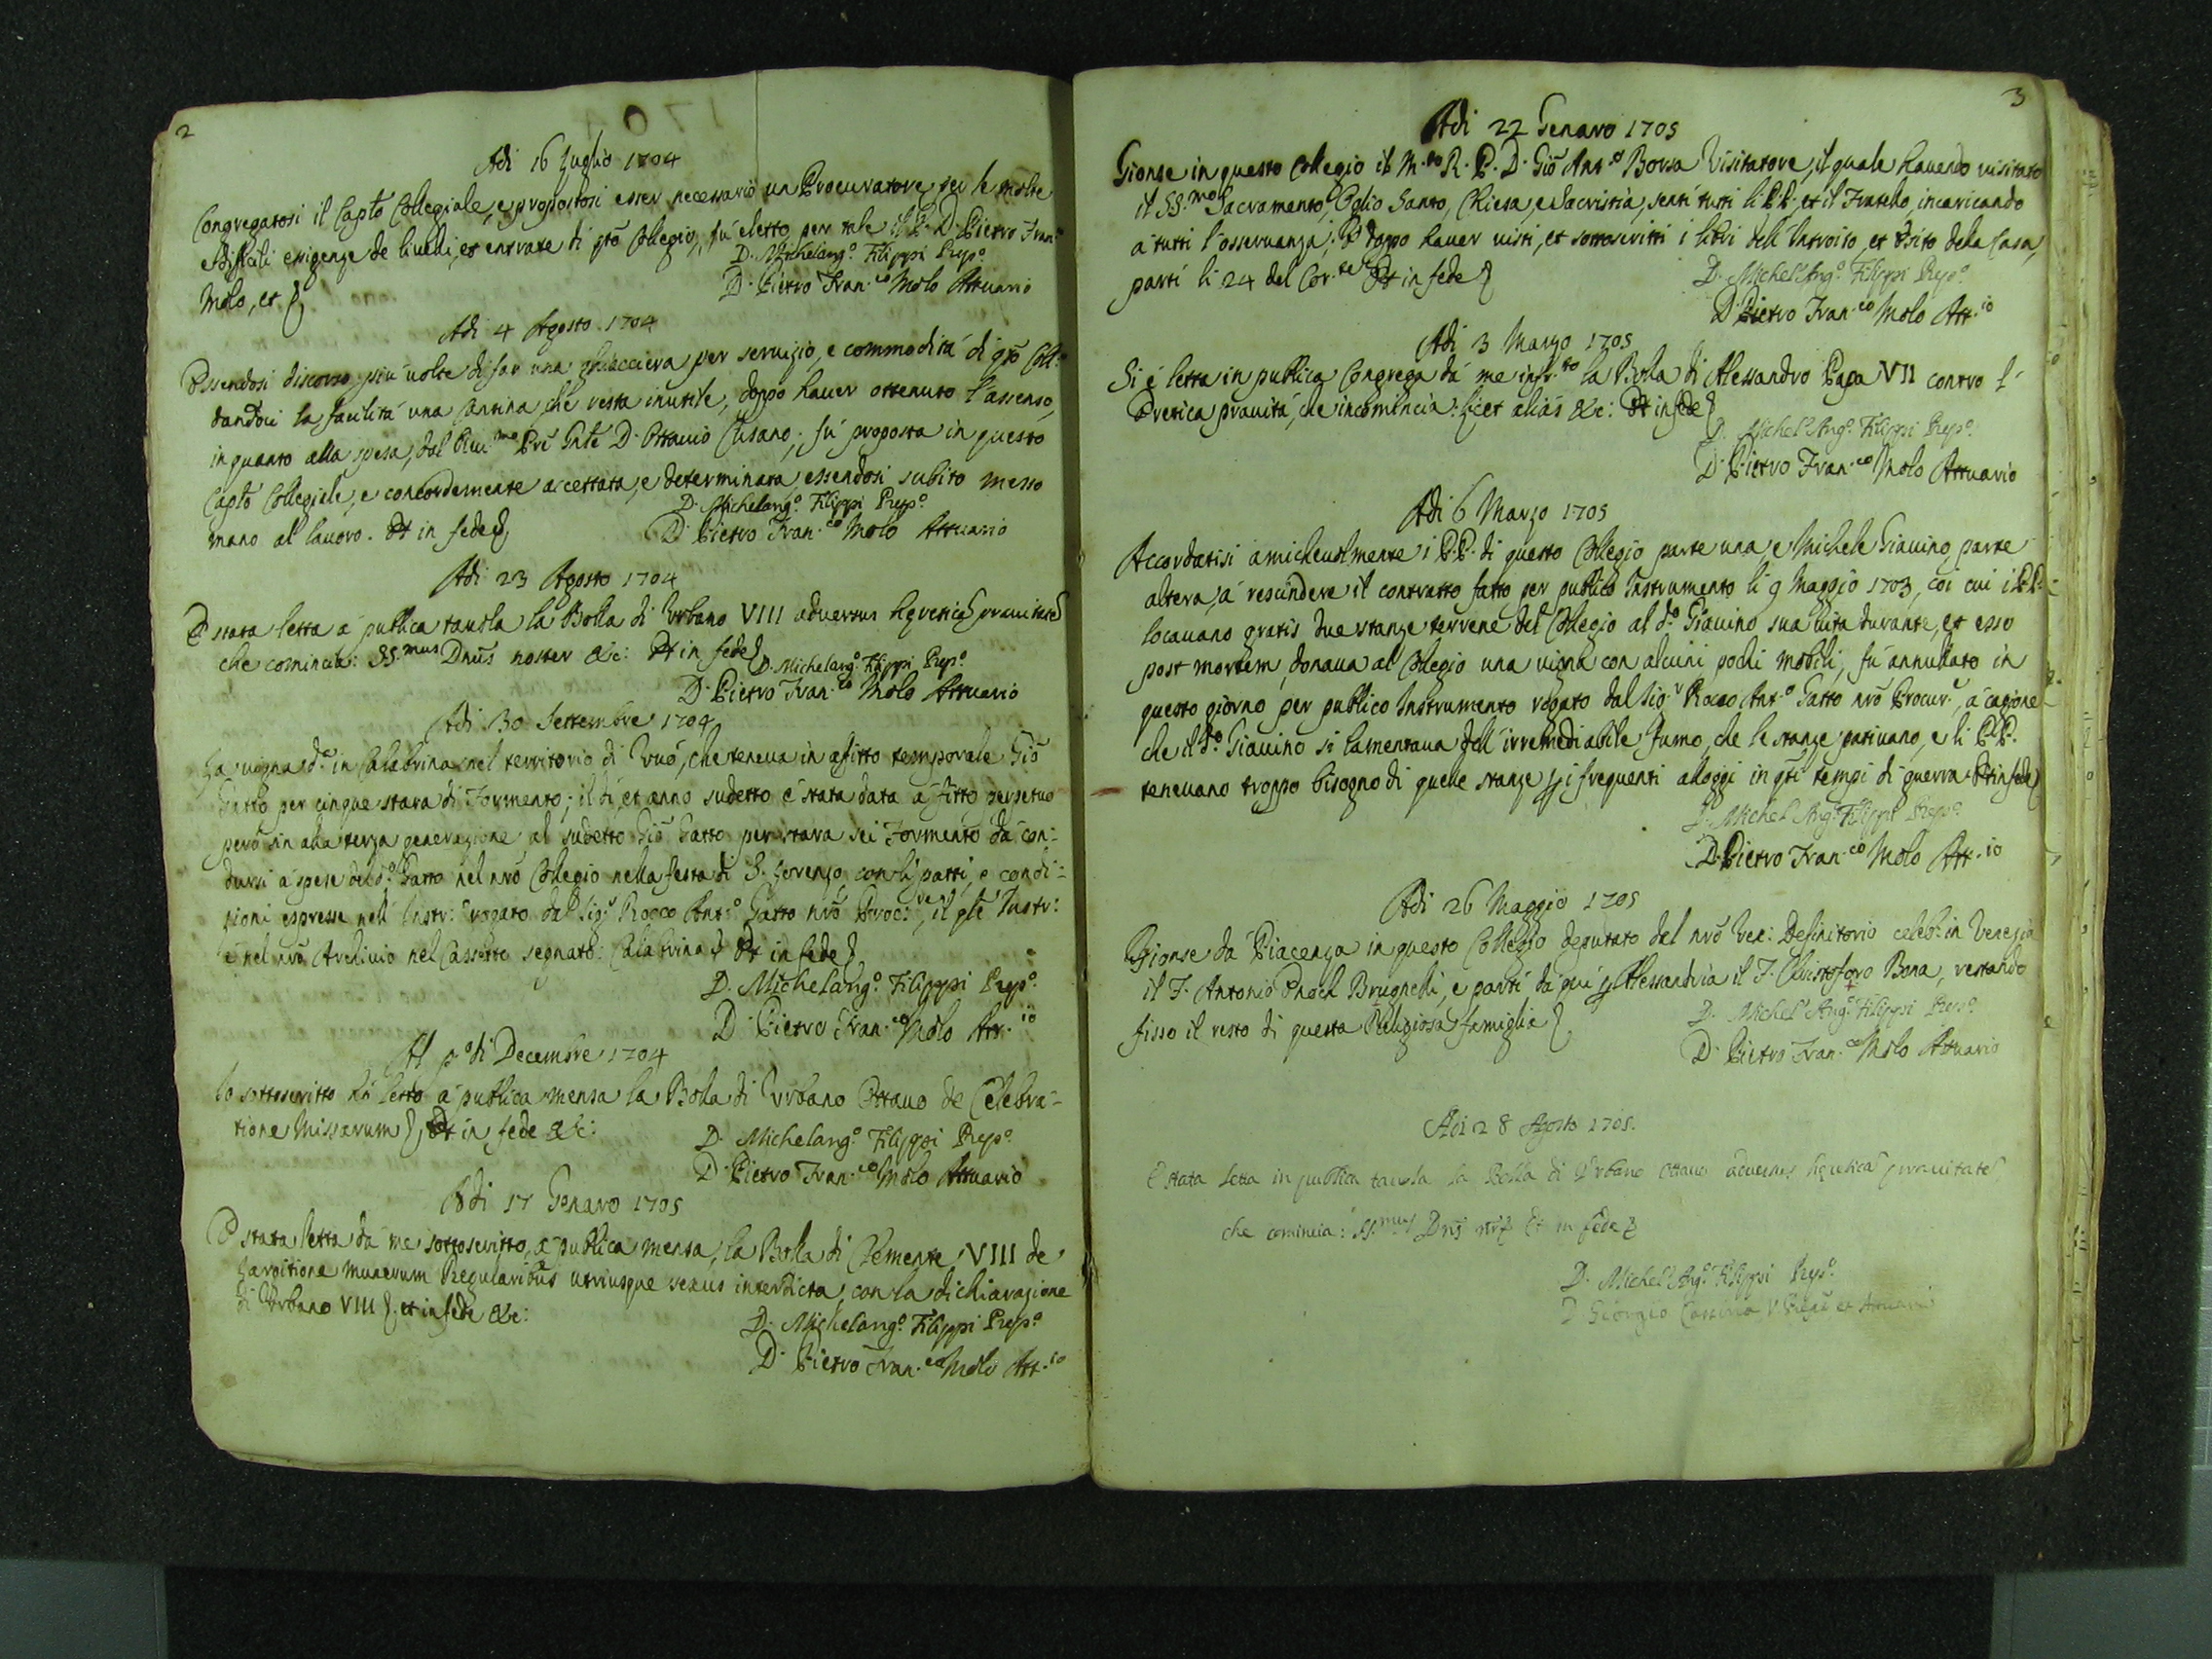 2
Adi 16 Luglio 1704
Congregatosi il Capto Collegiale, e propostosi esser necessario un Procuratore per le molte
difficili esigenze de livelli, et entrate di qto Collegio, fú eletto per tale il P. D. Pietro Fran.co
Molo, et
D. Michelang.o Filippi Prep.o
D. Pietro Fran.co Molo Attuario
Adi 4 Agosto 1704
Essendosi discorso piú uolte di far una ghiacciera per seruizio, e commoditá di qto Coll.o
dandoci la facilitá una Cantina che resta inutile, doppo hauer ottenuto l'assenso,
in quanto alla spesa, dal R.mo Pre Gnle D. Ottauio Cusano, fú proposta in questo
Capto Collegiale, e concordemente accettata, e determinata, essendosi subito messo
mano al lauoro. Et in fede
D. Michelang.o Filippi Prep.o
D. Pietro Fran.co Molo Attuario
Adi 23 Agosto 1704
È stata letta á publica tauola la Bolla di Vrbano VIII aduersus hereticã prauitatẽ
che comincia: SS.mus Dnus noster &c: Et in fede
D. Michelang.o Filippi Prep.o
D. Pietro Fran.co Molo Attuario
Adi 30 Settembre 1704
La uigna d.a in Calabrina nel territorio di Vuó, che teneua in affitto temporale Gió
Gatto per cinque stara di Formento; il di, et anno sudetto é stata data á fitto perpetuo
peró sin alla terza generazione al sudetto Gió Gatto per stara sei Formento da con-
dursi á spese del d.o Gatto nel nro Collegio nella festa di S. Lorenzo con li patti, e condi-
zioni espresse nell' Instr: rogato dal Sig.r Rocco Ant.o Gatto nro Proc:re, il qle Instr:
é nel nro Archiuio nel Cassetto segnato: Calabrina. Et in fede
D. Michelang.o Filippi Prep.o
D. Pietro Fran.co Molo Att.io
Al p.o di Decembre 1704
Io sottoscritto hó letto á publica mensa la Bolla di Vrbano Ottauo de Celebra-
tione Missarum, Et in fede &c:
D. Michelang.o Filippi Prep.o
D. Pietro Fran.co Molo Attuario
Adi 17 Genaro 1705
É stata letta da me sottoscritto, á publica mensa, la Bolla di Clemente VIII de
Largitione munerum Regularibus utriusque sexus interdicta, con la dichiarazione
di Vrbano VIII. et in fede &c:
D. Michelang.o Filippi Prep.o
D. Pietro Fran.co Molo Att.io
3
Adi 22 Genaro 1705
Gionse in questo Collegio il M.to R. P. D. Gió Ant.o Borsa Visitatore, il quale hauendo uisitato
il SS.mo Sacramento, Oglio Santo, Chiesa, e Sacristia, sentí tutti li PP. et il Fratello, incaricando
á tutti l'osseruanza; E doppo hauer uisti, et sottoscritti i libri dell' Introito, et Esito della Casa,
partí li 24 del Cor.te Et in fede
D. Michel'Ang.o Filippi Prep.o
D. Pietro Fran.co Molo Att.io
Adi 3 Marzo 1705
Si é letta in publica Congrega dá me infr.to la Bolla di Alessandro Papa VII contro l'
Eretica prauitá, che incomincia: Licet aliás &c: Et in fede
D. Michel'Ang.o Filippi Prep.o
D. Pietro Fran.co Molo Attuario
Adi 6 Marzo 1705
Accordatisi amicheuolmente i P.P. di questo Collegio parte una, e Michele Giauino parte
altera, á rescindere il contratto fatto per publico Instrumento li 9 Maggio 1703, coi cui i PP.
locauano gratis due stanze terrene del Collegio al d.o Giauino sua uita durante, et esso
post mortem, donaua al Collegio una uigna con alcuini pochi mobili, fú annullato in
questo giorno per publico Instrumento rogato dal Sig.r Rocco Ant.o Gatto nro Procur.e, á cagione
che il d.o Giauino si lamentaua dell' irremediabile fumo, che le stanze patiuano, e li PP.
teneuano troppo bisogno di quelle stanze p i frequenti alloggi in qti tempi di guerra. Et in fede
D. Michel Ang.o Filippi Prep.o
D. Pietro Fran.co Molo Att.io
Adi 26 Maggio 1705
Gionse da Piacenza in questo Collegio deputato dal nro Ven: Definitorio celeb: in Venezia
il F. Antonio Enoch Brugnelli, e partí da quí p Alessandria il F. Christoforo Bona, restando
fisso il resto di questa Religiosa famiglia
D. Michel' Ang.o Filippi Prep.o
D. Pietro Fran.co Molo Attuario
Adi 28 Agosto 1705.
É stata letta in publica tauola la Bolla di Vrbano Ottauo aduersus hereticã prauitatẽ
che comincia: SS.mus Dns nr Et in fede
D. Michel'Ang.o Filippi Prep.o
D. Giorgio et Attuario